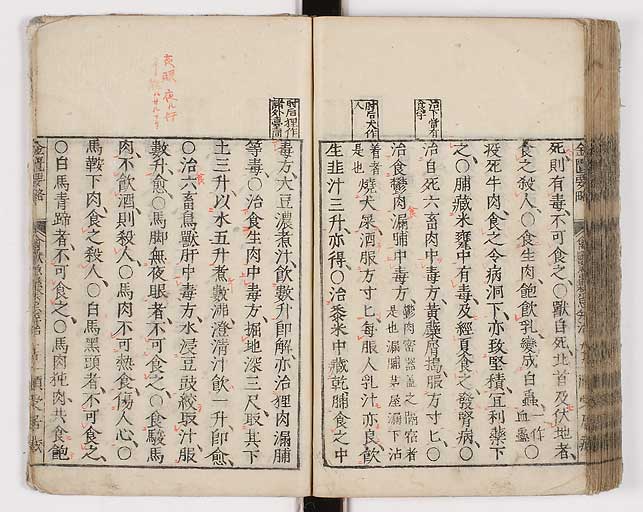 死、則有毒、不可食之、〇獸自死北首及伏地者、
食之殺人、〇食生肉飽飲乳、變成白蟲、一作血蠱〇
疫死牛肉、食之令病洞下、亦致堅積、宜利藥下
之、〇脯藏米甕中有毒、及經夏食之、發腎病、〇
治自死六畜肉中毒方、黃蘗屑搗服方寸匕、〇
治食鬱肉漏脯中毒方、鬱肉密器蓋之隔宿者是也漏脯茅屋漏下沾
著者是也燒犬屎酒服方寸匕、每服人乳汁亦良、飲
生韭汁三升、亦得、〇治黍米中藏乾脯食之中
治下當有食字
肘后犬作人
毒方、大豆濃煮汁、飲數升即解、亦治狸肉漏脯
等毒、〇治食生肉中毒方、掘地深三尺、取其下
土三升、以水五升煮數沸、澄清汁飲一升、即愈、
〇治六畜鳥獸肝中毒方、水浸豆豉、絞取汁、服
數升愈、〇馬脚無夜眼者、不可食之、〇食駿馬
肉、不飲酒、則殺人、〇馬肉不可熱食、傷人心、〇
馬鞍下肉、食之殺人、〇白馬黑頭者、不可食之、
〇白馬青蹄者、不可食之、〇馬肉㹠肉共食飽
肘后狸作諸外臺同
夜眼
金匱要略
金匱要略